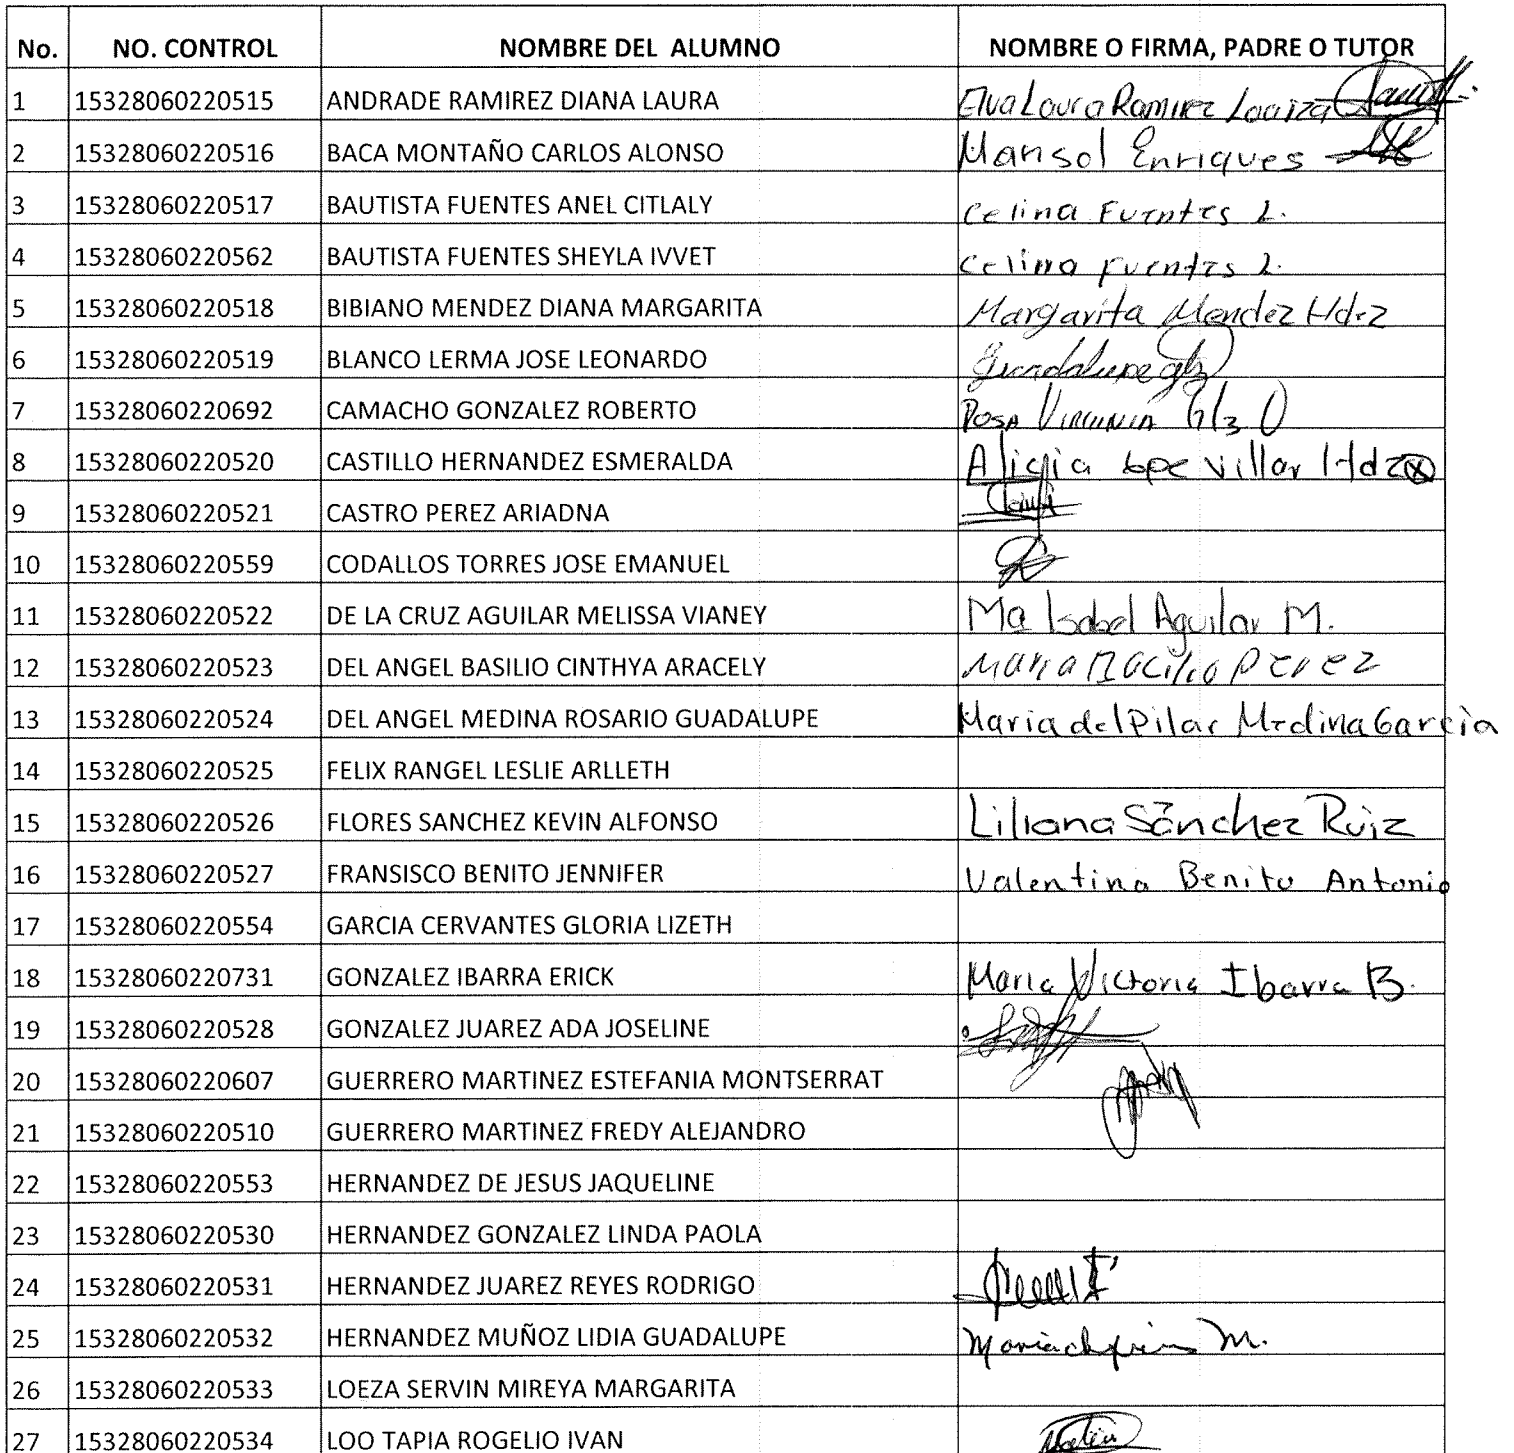 No. NO. CONTROL NOMBRE DEL ALUMNO NOMBRE O FIRMA, PADRE O TUTOR
1 15328060220515 ANDRADE RAMIREZ DIANA LAURA Elva Laura Ramirez Loaiza
2 15328060220516 BACA MONTAÑO CARLOS ALONSO Marisol Enriques
3 15328060220517 BAUTISTA FUENTES ANEL CITLALY Celina Fuentes L.
4 15328060220562 BAUTISTA FUENTES SHEYLA IVVET Celina Fuentes L.
5 15328060220518 BIBIANO MENDEZ DIANA MARGARITA Margarita Mendez Hdez
6 15328060220519 BLANCO LERMA JOSE LEONARDO Guadalupe
7 15328060220692 CAMACHO GONZALEZ ROBERTO Rosa Virginia Glz O
8 15328060220520 CASTILLO HERNANDEZ ESMERALDA Alicia Villar Hdz
9 15328060220521 CASTRO PEREZ ARIADNA
10 15328060220559 CODALLOS TORRES JOSE EMANUEL
11 15328060220522 DE LA CRUZ AGUILAR MELISSA VIANEY Ma Isabel Aguilar M.
12 15328060220523 DEL ANGEL BASILIO CINTHYA ARACELY Maria Bacilio Perez
13 15328060220524 DEL ANGEL MEDINA ROSARIO GUADALUPE Maria del Pilar Medina Garcia
14 15328060220525 FELIX RANGEL LESLIE ARLLETH
15 15328060220526 FLORES SANCHEZ KEVIN ALFONSO Liliana Sánchez Ruiz
16 15328060220527 FRANSISCO BENITO JENNIFER Valentina Benito Antonio
17 15328060220554 GARCIA CERVANTES GLORIA LIZETH
18 15328060220731 GONZALEZ IBARRA ERICK Maria Victoria Ibarra B.
19 15328060220528 GONZALEZ JUAREZ ADA JOSELINE
20 15328060220607 GUERRERO MARTINEZ ESTEFANIA MONTSERRAT
21 15328060220510 GUERRERO MARTINEZ FREDY ALEJANDRO
22 15328060220553 HERNANDEZ DE JESUS JAQUELINE
23 15328060220530 HERNANDEZ GONZALEZ LINDA PAOLA
24 15328060220531 HERNANDEZ JUAREZ REYES RODRIGO
25 15328060220532 HERNANDEZ MUÑOZ LIDIA GUADALUPE M.
26 15328060220533 LOEZA SERVIN MIREYA MARGARITA
27 15328060220534 LOO TAPIA ROGELIO IVAN